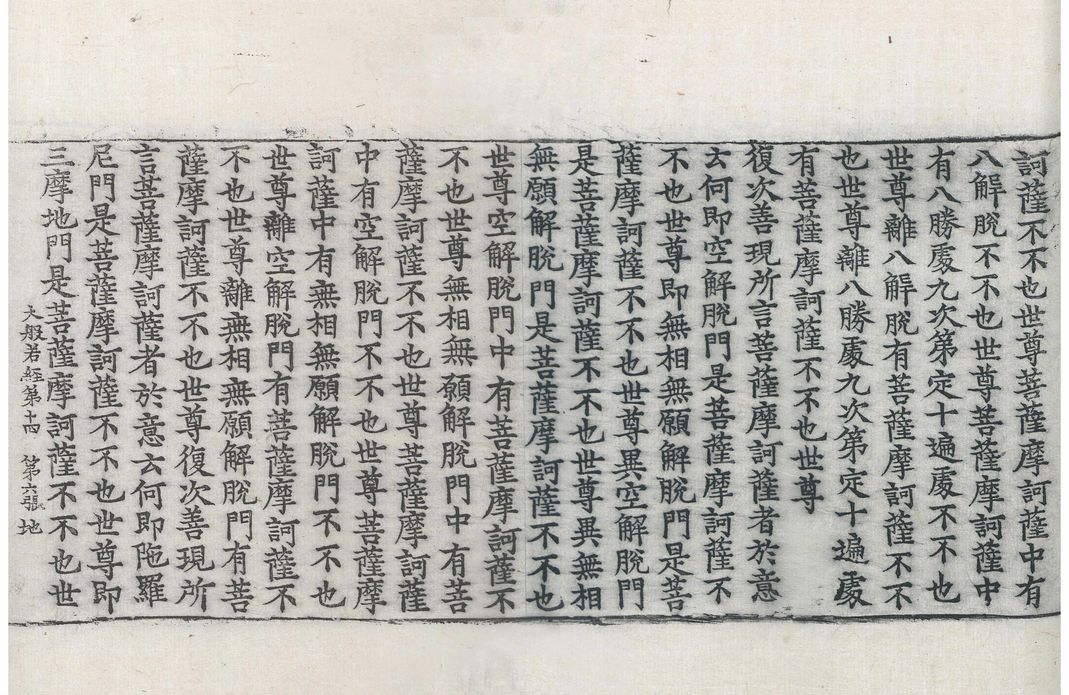 訶薩不不也世尊菩薩摩訶薩中有
八解脫不不也世尊菩薩摩訶薩中
有八勝處九次第定十遍處不不也
世尊離八解脫有菩薩摩訶薩不不
也世尊離八勝處九次第定十遍處
有菩薩摩訶薩不不也世尊
復次善現所言菩薩摩訶薩者於意
云何即空解脫門是菩薩摩訶薩不
不也世尊即無相無願解脫門是菩
薩摩訶薩不不也世尊異空解脫門
是菩薩摩訶薩不不也世尊異無相
無願解脫門是菩薩摩訶薩不不也
世尊空解脫門中有菩薩摩訶薩不
不也世尊無相無願解脫門中有菩
薩摩訶薩不不也世尊菩薩摩訶薩
中有空解脫門不不也世尊菩薩摩
訶薩中有無相無願解脫門不不也
世尊離空解脫門有菩薩摩訶薩不
不也世尊離無相無願解脫門有菩
薩摩訶薩不不也世尊復次善現所
言菩薩摩訶薩者於意云何即陁羅
尼門是菩薩摩訶薩不不也世尊即
三摩地門是菩薩摩訶薩不不也世
大般若經第十四 第六張 地